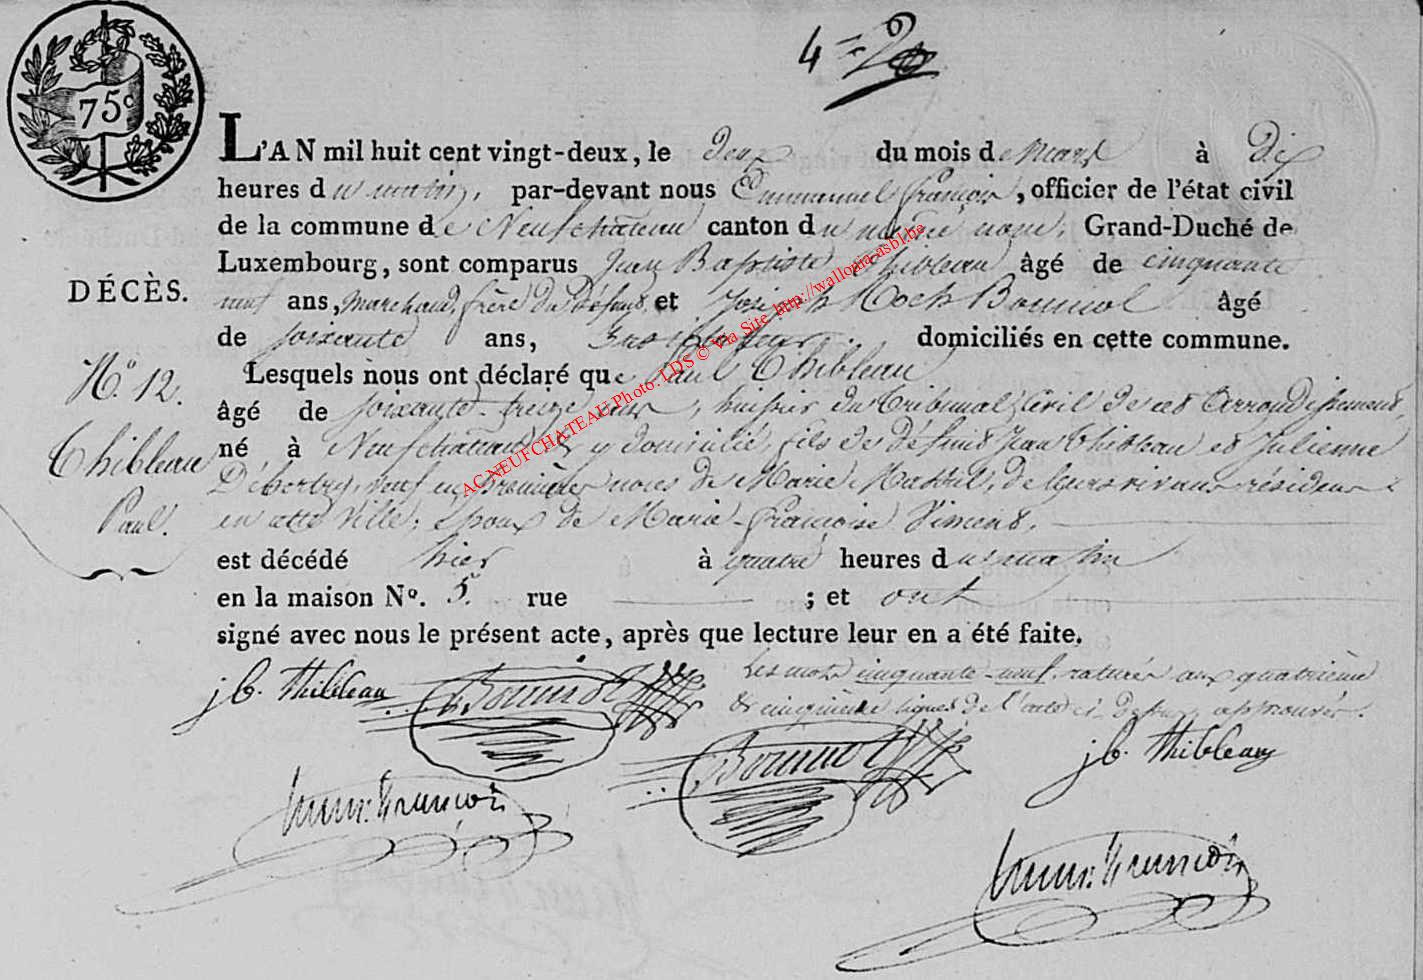 4 = 20
75c
L'AN mil huit cent vingt-deux, le deux du mois de Mars à dix
heures du matin, par-devant nous Emmanuel François, officier de l'état civil
de la commune de Neufchateau canton du même nom, Grand-Duché de
Luxembourg, sont comparus Jean Baptiste Thibleau âgé de cinquante
DÉCÈS.
neuf ans, Marchand, frère du Défunt et Joseph Roch Bounnol âgé
de soixante ans, domiciliés en cette commune.
N.o 12.
Lesquels nous ont déclaré que Paul Thibleau
âgé de soixante-treize ans, huissier du Tribunal Civil de cet Arrondissement,
Thibleau
né à Neufchateau & y domicilié, fils de défunts Jean Thibleau et Julienne
veuf en premières noces de Marie de leurs vivans résidens
Paul.
en cette ville; époux de Marie-Françoise Simont.
est décédé hier à quatre heures du matin
en la maison No. 5. rue ; et ont
signé avec nous le présent acte, après que lecture leur en a été faite.
Les mots cinquante-neuf raturés aux quatrième
& cinquième lignes de l'acte ci-dessus, approuvés.
jb. thibleau Bounnol
Bounnol jb. thibleau
Emm. François
Emm. François
AC NEUFCHATEAU Photo: LDS © Via Site http://wallonia-asbl.be